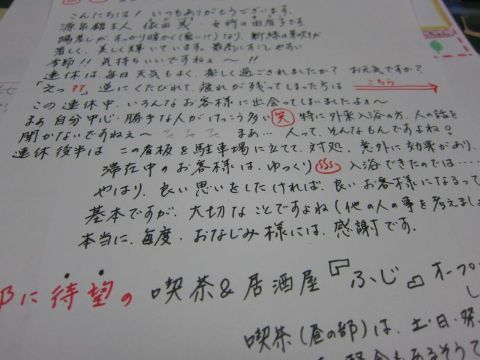 こんにちは! いつもありがとうございます。
源泉館主人 依田茂・女将の由居子です
陽差しが、すっかり暖かく(暑い!!)なり、新緑の芽吹が
美しく、美しく輝いています。最高にすごしやすい
季節!! 気持ちいいですねぇ〜!!
連休は毎日天気もよく、楽しく過ごされましたか? お元気ですか?
「えっ??、逆にくたびれて、疲れが残ってしまった方は こちら
この連休中、いろんなお客様に出会ってしまいましたよぉ〜
まぁ 自分中心・勝手な人がけっこう多い 笑 特に外来入浴の方、人の話を
聞かないですねぇ〜 まぁ… 人って、そんなもんですよね?
連休後半は この看板を駐車場に立て、対処、意外に効果があり、
滞在中のお客様は、ゆっくり 入浴できたのでは‥‥
やはり、良い思いをしたければ、良いお客様になるって
基本ですが、大切なことですよね(他の人の事を考えまし
本当に、毎度・おなじみ様には、感謝です。
に待望の 喫茶&居酒屋『ふじ』オープ
し
喫茶(昼の部)は、土・日・祭